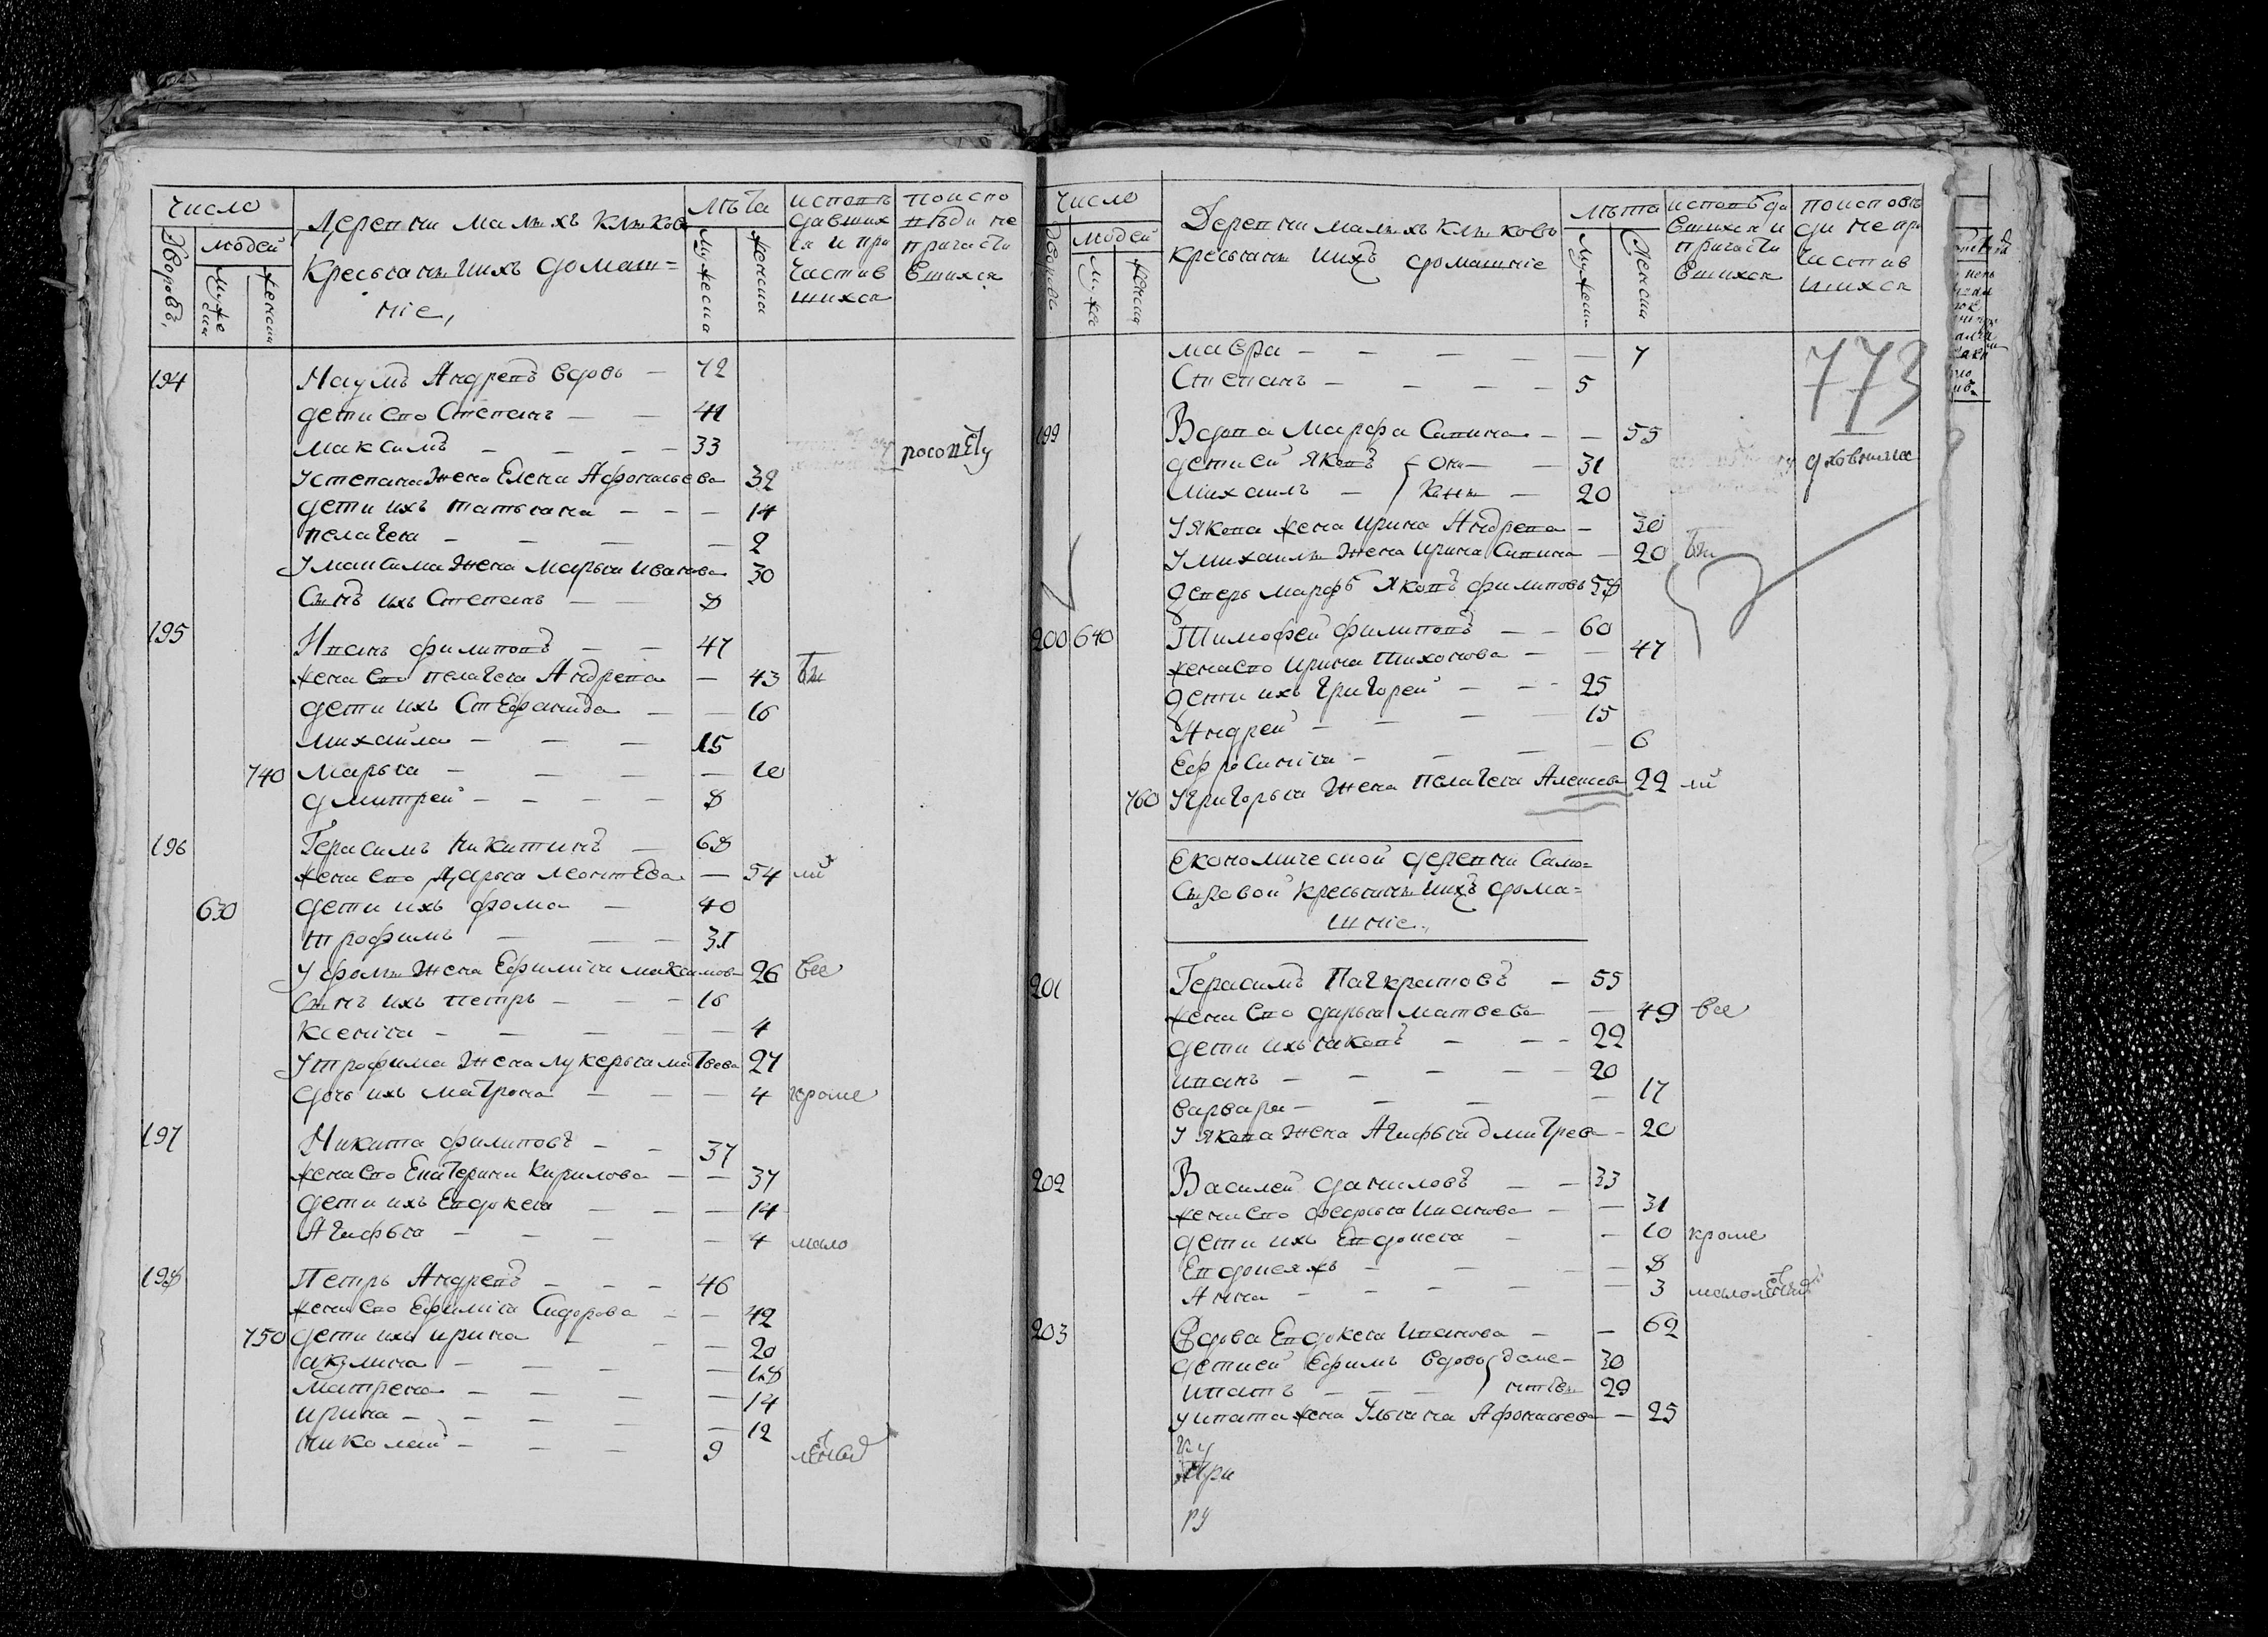 число
людей
Дворовъ,
мужеска
женска
Деревни малыхъ Клыковъ
Крестьяны ихъ домаш=
ніе,
лѣта
мужеска
женска
исповѣ
давших
ся и при
частив
шихся
поиспо
вѣди не
причасти
вшихся
194 Наумъ Андревъ вдовъ — 72
дети ево Степанъ — — 41
максимъ — — — 33
роспѣту
Устепана жена Елена Афонасьева 32
дети ихъ татьяна — — — 14
пелагея — — — — 2
Умаксима жена марья иванова 30
Сынъ ихъ Степанъ — — 8
195 Иванъ филиповъ — — 47
жена ево пелагея Андрева — 43 бы
дети ихъ Стефанида — — 16
михайла — — — 15
740 марья — — — — 10
дмитрей — — — — 8
196 Герасимъ Никитинъ — 68
жена ево Дарья Леонтева — 54 ли
630 дети ихъ фома — 40
трофимъ — — — 31
У фомы жена Ефимія максимова 26 все
Сынъ ихъ петръ — — — 16
ксенія — — — — 4
Утрофима жена лукерья матвева 27
дочь ихъ матрона — — — 4 кроме
197 Никита филиповъ — — 37
жена ево Екатерина Кирилова — — 37
дети ихъ Евдокея — — — 14
Агафья — — — — 4 мало
198 Петръ Андревъ — — — 46
жена ево Ефимія Сидорова — — 42
750 дети ихъ ирина — — — 20
акулина — — — — 18
матрена — — — — 14
ирина — — — — 12
николай — — — 9 летныхъ
число
людей
Дворовъ
мужес
женска
Деревни малыхъ Клыковъ
крестьяны ихъ домашніе
лѣта
мужески
женски
исповѣда
вшихся и
причасти
вшихся
поисповѣ
ди непри
частив
шихся
мавра — — — — — 7
Степанъ — — — — 5
773
199 Вдова Марфа Савина — — 55
детией яковъ — они — 31
михаилъ — каны — 20
Уякова жена ирина Андрева — 30
Умихаилы жена ирина Савина — 20 бы
деверь марфѣ яковъ филиповъ 58
200 640 Тимофей филиповъ — — 60
жена ево ирина тихонова — — 47
дети ихъ григорей — — 25
Андрей — — — — 15
Ефросинія — — — — 6
760 Угригорья жена пелагея Алексева 22 ли
Економической деревни Само=
Сыровой крестьяны ихъ дома=
шніе.
201 Герасимъ Панкратовъ — 55
жена ево дарья матвева — 49 все
дети ихъ яковъ — — — 22
иванъ — — — — 20
варвара — — — — 17
У якова жена Агафья дмитрева — 20
202 Василей даниловъ — — 33
жена ево федосья иванова — — 31
дети ихъ Евдокея — — 10 кроме
Евдокея жъ — — — — 8
Анна — — — — — 3 малолетныхъ
203 Вдова Евдокея иванова — — 62
детией Ефимъ вдовъ 30
ипатъ — — — 29
у ипата жена Ульяна Афонасьева — 25
ру
При
ру